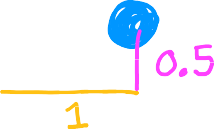 0.5
1